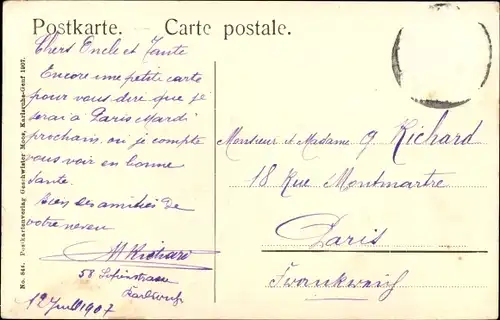 Postkarte. – Carte postale.
Chers Oncle et Tante
Encore une petite carte
pour vous dire que je
serai à Paris Mardi
prochain, où je compte
vous voir en bonne
Santé.
amitiés de
votre neveu
M Richard
58 Sofienstrasse
Karlsruhe
12 Juill 1907
Monsieur et Madame G. Richard
18 Rue Montmartre
Paris
Frankreich
No. Postkartenverlag Geschwister Moos, Karlsruhe-Genf 1907.